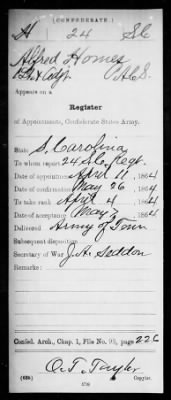 (CONFEDERATE.)
H 24 S C
Alfred Homes
1 Lt & Adjt. P.A.C.S.
Appears on a
Register
of Appointments, Confederate States Army.
State S. Carolina
To whom report 24 S.C. Regt.
Date of appointment April 11, 1864
Date of confirmation May 26, 1864
To take rank April 4, 1864
Date of acceptance May 7, 1864
Delivered Army of Tenn
Subsequent disposition
Secretary of War J.A. Seddon
Remarks:
Confed. Arch., Chap. 1, File No. 91, page 226
O.T. Taylor
(635) Copyist.